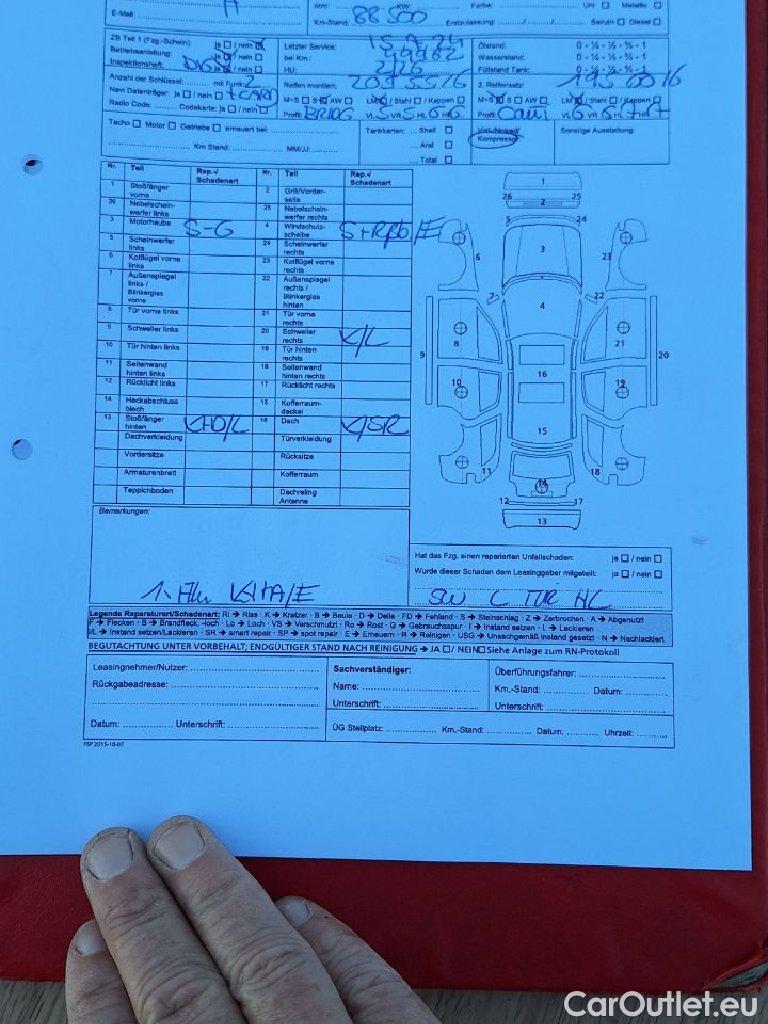 E-Mail:
Km-Stand: 88500 Erstzulassung
Benzin Diesel
ZB Teil 1 (Fzg.-Schein) ja / nein
Betriebsanleitung: ja / nein
Inspektionsheft:
Letzter Service:
bei Km.:
HU: 2/26
Ölstand: 0 - ¼ - ½ - ¾ - 1
Wasserstand: 0 - ¼ - ½ - ¾ - 1
Füllstand Tank: 0 - ¼ - ½ - ¾ - 1
Anzahl der Schlüssel: mit Funk: 2
Navi Datenträger: ja / nein
Radio Code: Codekarte: ja / nein
Reifen montiert: 205 55 16
M+S S AW LM / Stahl / Kappen
Profil: BRIDG VL 5 VR 5 HL 6 HR 6
2. Reifensatz: 195 60 16
M+S S AW LM / Stahl / Kappen
Profil: VL 6 VR 6 HL 7 HR 7
Tacho Motor Getriebe erneuert bei:
Km Stand: MM/JJ:
Tankkarten: ... Shell
... Aral
... Total
Voll-/Notrad/
Kompressor
Sonstige Ausstattung:
Nr. Teil Rep.-/ Schadenart Nr. Teil Rep.-/ Schadenart
1 Stoßfänger vorne 2 Grill/Vorder- seite
26 Nebelschein- werfer links 25 Nebelschein- werfer rechts
3 Motorhaube S-G 4 Windschutz- scheibe
5 Scheinwerfer links 24 Scheinwerfer rechts
6 Kotflügel vorne links 23 Kotflügel vorne rechts
7 Außenspiegel links / Blinkerglas vorne 22 Außenspiegel rechts / Blinkerglas hinten
8 Tür vorne links 21 Tür vorne rechts
9 Schweller links 20 Schweller rechts K/L
10 Tür hinten links 19 Tür hinten rechts
11 Seitenwand hinten links 18 Seitenwand hinten rechts
12 Rücklicht links 17 Rücklicht rechts
14 Heckabschluss blech 15 Kofferraum- deckel
13 Stoßfänger hinten K+D/L 16 Dach K/SR
Dachverkleidung Türverkleidung
Vordersitze Rücksitze
Armaturenbrett Kofferraum
Teppichboden Dachreling Antenne
1
26 2 25
5 24
3
6 23
7 22
4
8 21
9 20
16
10 19
15
11 18
14
12 17
13
Bemerkungen:
Hat das Fzg. einen reparierten Unfallschaden: ja / nein
Wurde dieser Schaden dem Leasinggeber mitgeteilt: ja / nein
Legende Reparaturart/Schadenart: RI → Riss - K → Kratzer - B → Beule - D → Delle - FD → Fehlend - S → Steinschlag - Z → Zerbrochen. A → Abgenutzt
F → Flecken - B → Brandfleck, -loch - Lo → Loch - VS → Verschmutzt - Ro → Rost - G → Gebrauchsspur - I → Instand setzen - L → Lackieren
I/L → Instand setzen/Lackieren - SR → smart repair - SP → spot repair - E → Erneuern - R → Reinigen - USG → Unsachgemäß instand gesetzt - N → Nachlackiert
BEGUTACHTUNG UNTER VORBEHALT; ENDGÜLTIGER STAND NACH REINIGUNG → JA / NEIN Siehe Anlage zum RN-Protokoll
Leasingnehmer/Nutzer:
Rückgabeadresse:
Datum: Unterschrift:
Sachverständiger:
Name:
Unterschrift:
Überführungsfahrer:
Km.-Stand: Datum:
Unterschrift:
ÜG Stellplatz: Km.-Stand: Datum: Uhrzeit:
CarOutlet.eu